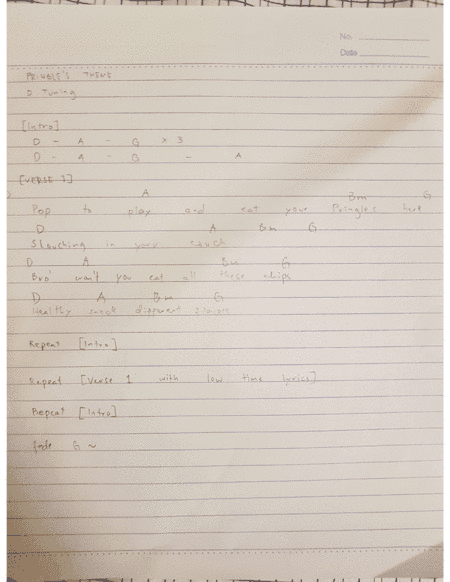 No.
Date
PRINGLE'S THEME
D Tuning
[Intro]
D - A - G × 3
D - A - G - A
[VERSE 1]
D A Bm G
Pop to play and eat your Pringles here
D A Bm G
Slouching in your couch
D A Bm G
Bro' won't you eat all these chips
D A Bm G
Healthy snack different
Repeat [Intro]
Repeat [Verse 1 with low time lyrics]
Repeat [Intro]
fade G ~